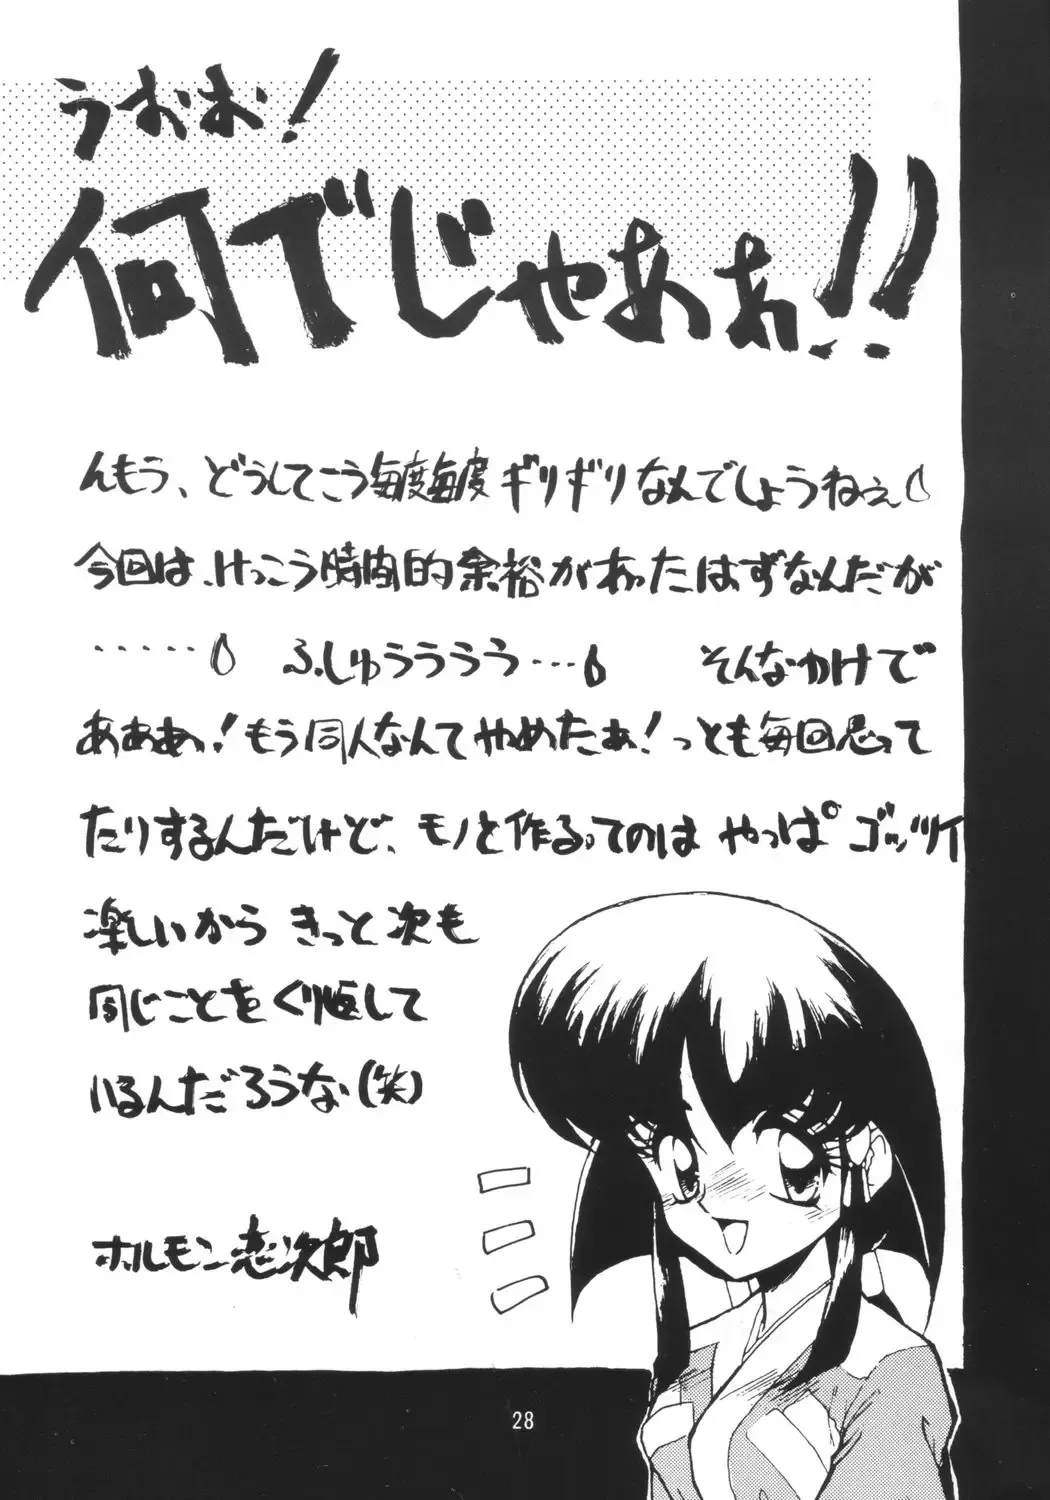 うおお!
何でじゃあぁ!!
んもう、どうしてこう毎度毎度ギリギリなんでしょうねぇ
今回は、けっこう時間的余裕があったはずなんだが
‥‥‥ ふしゅうううう… そんなわけで
あああっ!もう同人なんてやめたぁ!っとも毎回思って
たりするんだけど、モノを作るってのは やっぱ ゴッツイ
楽しいから きっと次も
同じことをくり返して
いるんだろうな(笑)
ホルモン恋次郎
28